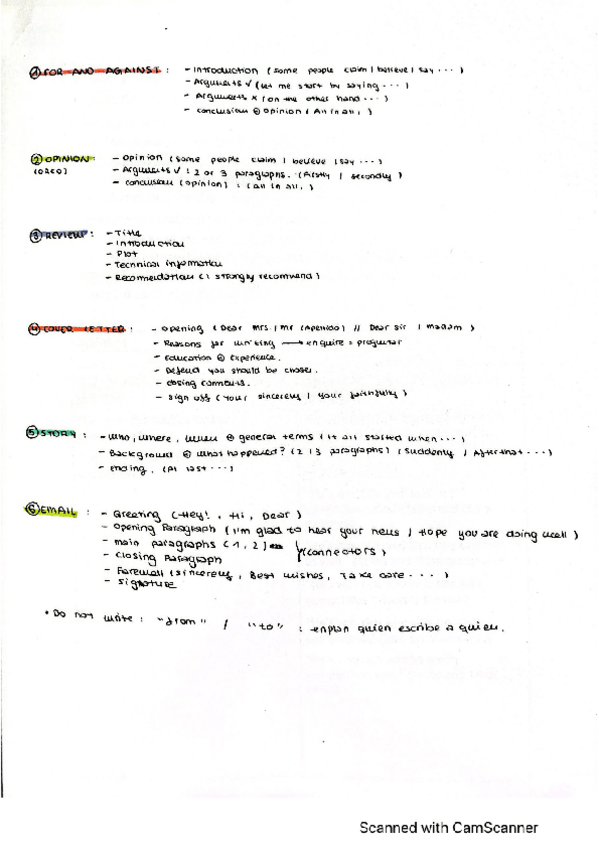 ① FOR AND AGAINST : - Introduction (some people claim / believe / say ...)
- Arguments ✓ (let me start by saying ...)
- Arguments x (on the other hand ...)
- conclusion ⊕ opinion (All in all,)
② OPINION : - Opinion (some people claim / believe / say ...)
(OREO) - Arguments ✓ : 2 or 3 paragraphs. (Firstly / secondly)
- conclusion (opinion) : (All in all,)
③ REVIEW : - Title
- Introduction
- Plot
- Technical information
- Recomendation (I strongly recommend)
④ COVER LETTER : - Opening (Dear Mrs. / Mr (Apellido) // Dear sir / madam)
- Reasons for writing → enquire = preguntar
- Education ⊕ experience.
- Defend you should be chosen.
- closing comments.
- sign off (Your sincerely / your faithfully)
⑤ STORY : - Who, where, when ⊕ general terms (It all started when ...)
- Background ⊕ what happened? (2 / 3 paragraphs) (Suddenly / After that ...)
- ending. (At last ...)
⑥ EMAIL : - Greeting (Hey!, Hi, Dear)
- Opening Paragraph (I'm glad to hear your news / Hope you are doing well)
- main paragraphs (1, 2) (connectors)
- Closing Paragraph
- Farewell (sincerely, Best wishes, Take care ...)
- signature
* Do not write : "from" / "to" : en plan quien escribe a quien.
Scanned with CamScanner